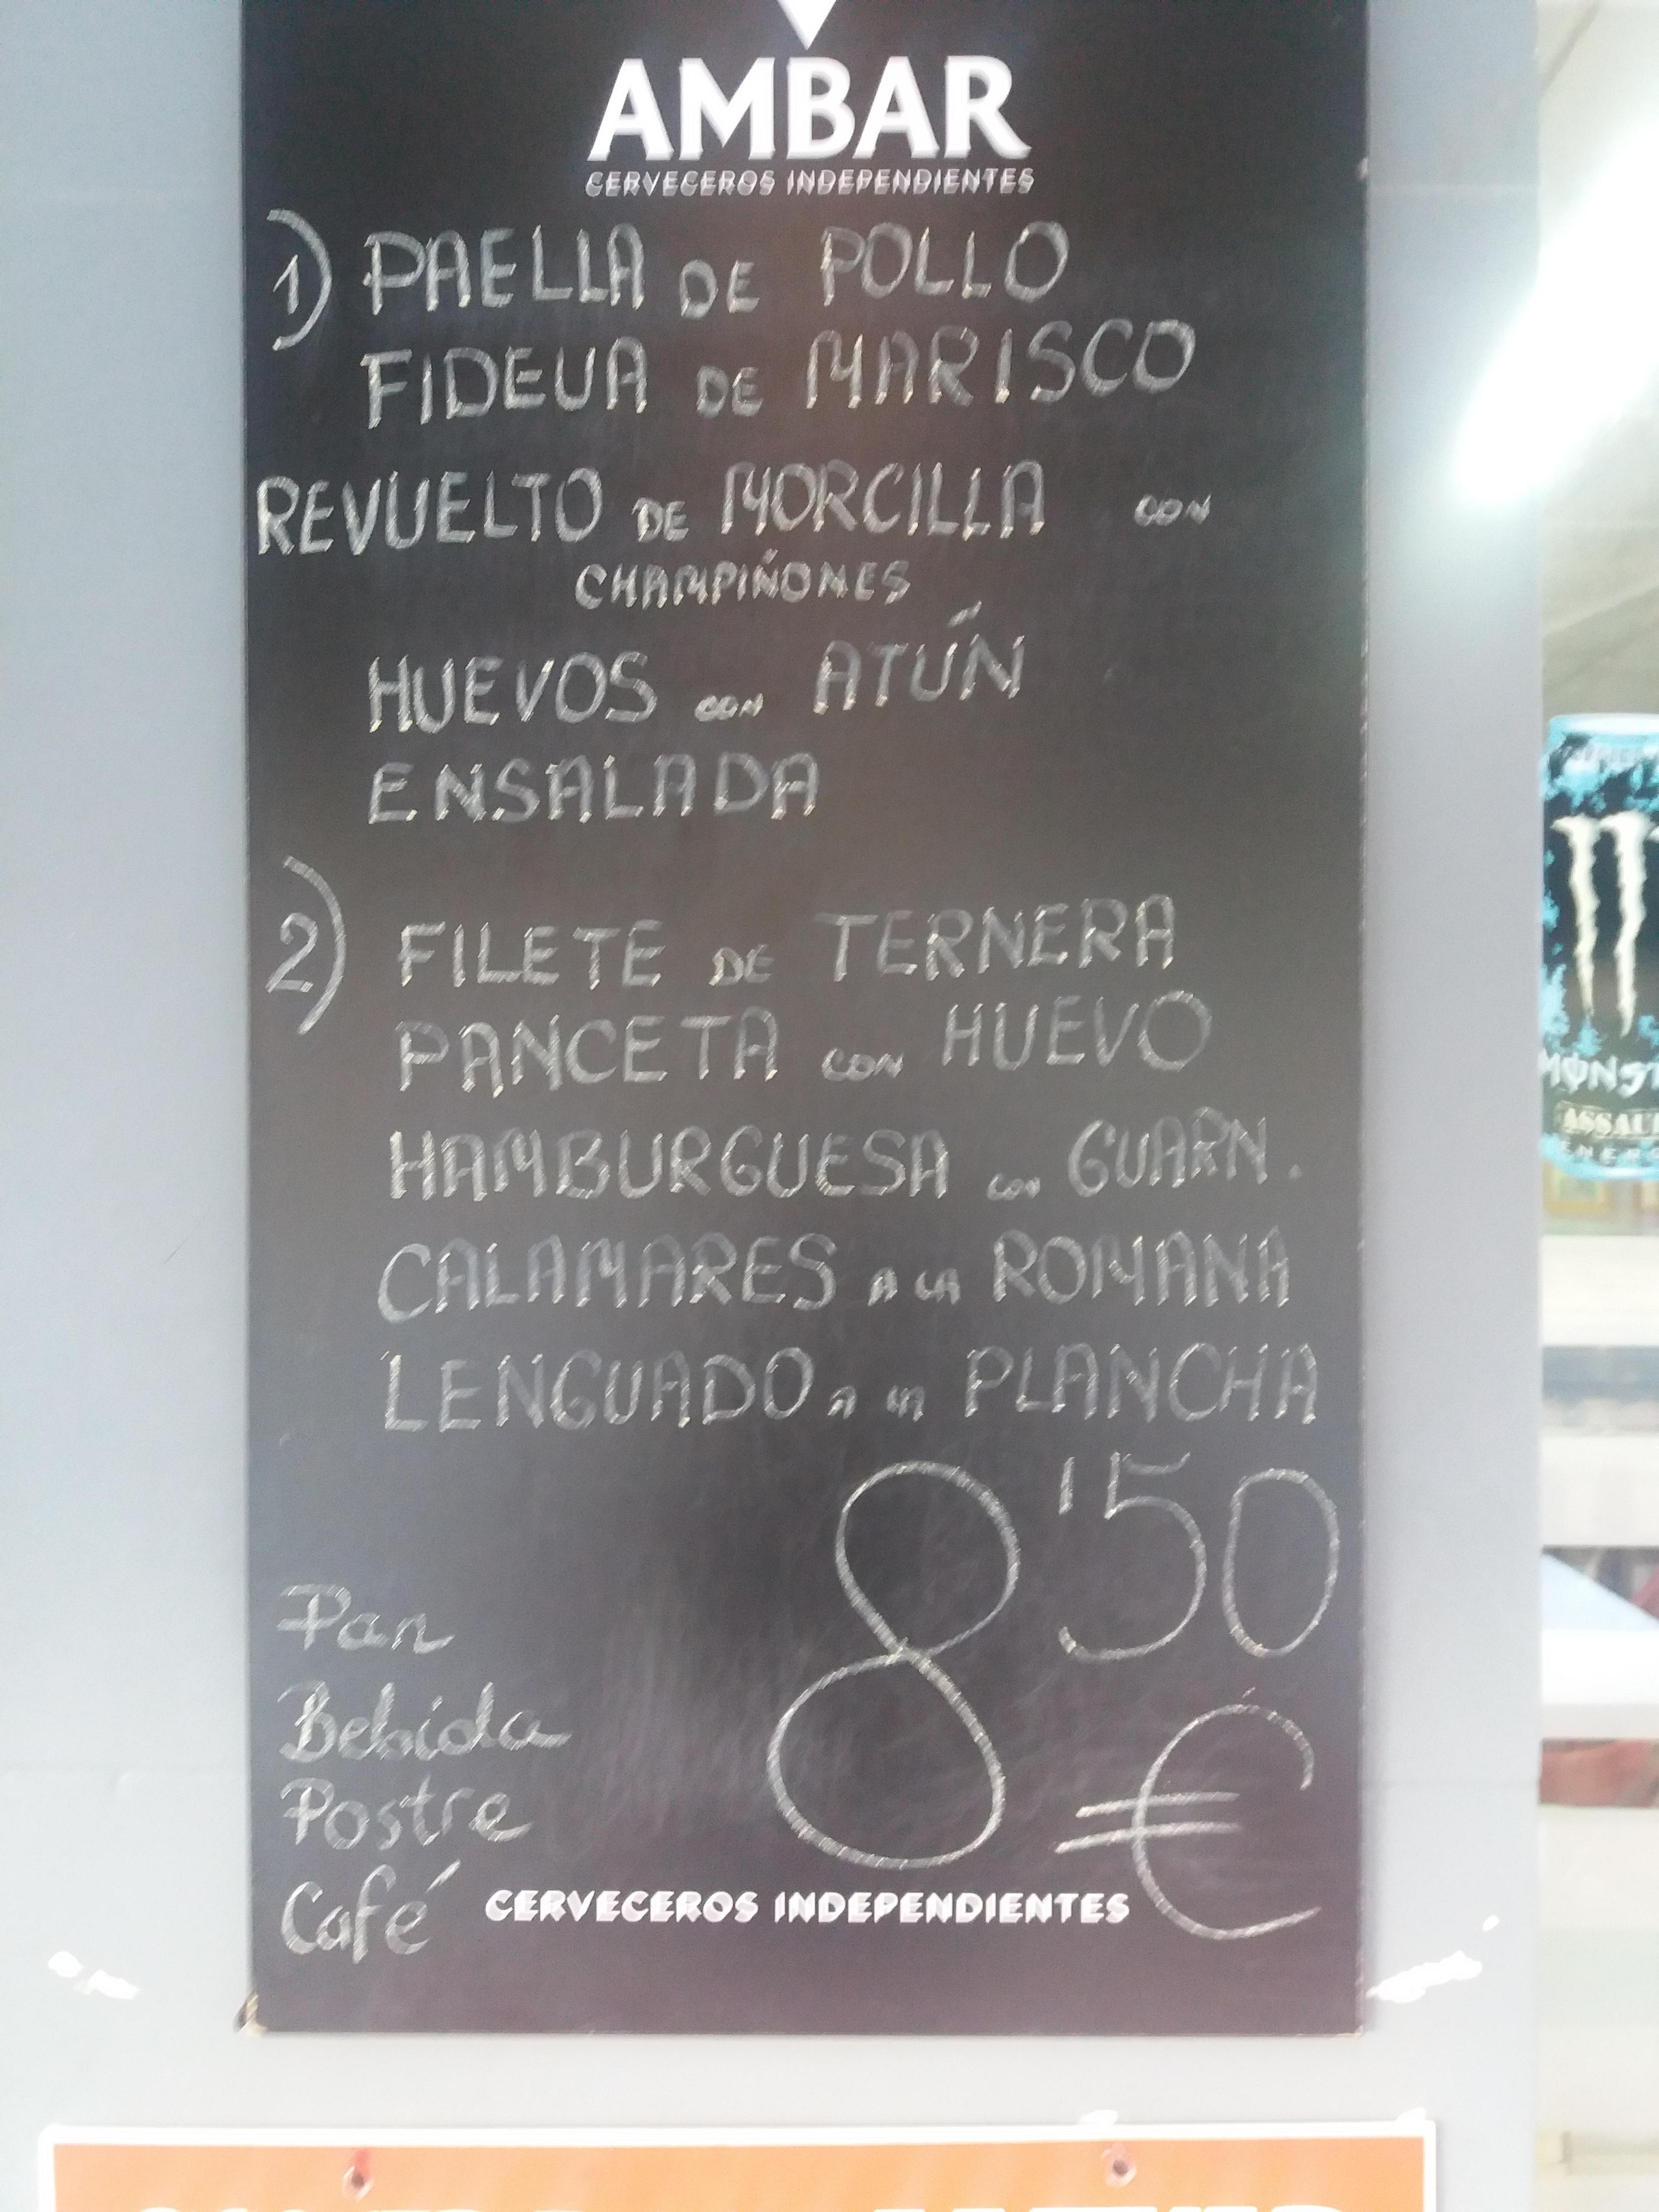 AMBAR
CERVECEROS INDEPENDIENTES
1) PAELLA DE POLLO
FIDEUA DE MARISCO
REVUELTO DE MORCILLA CON
CHAMPIÑONES
HUEVOS CON ATÚN
ENSALADA
2) FILETE DE TERNERA
PANCETA CON HUEVO
HAMBURGUESA CON GUARN.
CALAMARES A LA ROMANA
LENGUADO A LA PLANCHA
8'50
€
Pan
Bebida
Postre
Café
CERVECEROS INDEPENDIENTES